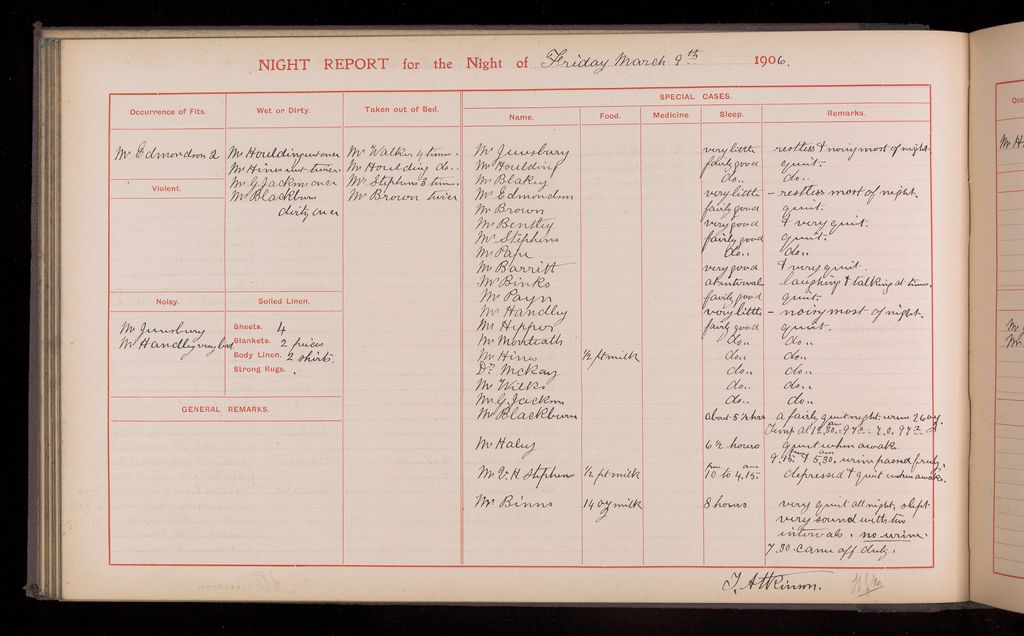 NIGHT REPORT for the Night of Friday March 9th 1906.
Occurrence of Fits.
Mr Edmondson 2
Violent.
Noisy.
Mr Jewsbury
Mr Handley very bad
Wet or Dirty.
Mr Houlding wet once
Mr Hines wet twice
Mr G. Jackson once
Mr Blackburn
dirty once
Soiled Linen.
Sheets. 4
Blankets. 2 pieces
Body Linen. 2 shirts.
Strong Rugs.
GENERAL REMARKS.
Taken out of Bed.
Mr Walker 4 times.
Mr Houlding do..
Mr Stephens 3 times.
Mr Brown twice
SPECIAL CASES.
Name. Food. Medicine. Sleep. Remarks.
Mr Jewsbury very little restless & noisy most of night.
Mr Houlding fairly good quiet.
Mr Blakey do.. do..
Mr Edmondson very little - restless most of night.
Mr Brown fairly good quiet.
Mr Bentley very good & very quiet.
Mr Stephens fairly good quiet.
Mr Pape do.. do..
Mr Barritt very good & very quiet.
Mr Binks at interval laughing & talking at times.
Mr Payn fairly good quiet.
Mr Handley very little - noisy most of night.
Mr Hippos fairly good quiet.
Mr Monteath do.. do..
Mr Hines ½ pt milk do.. do..
Dr. McKay do.. do..
Mr Wilks do.. do..
Mr G. Jackson do.. do..
Mr Blackburn about 5½ hrs a fairly quiet night. urine 26 oz.
Temp at 12.30 am
Mr Haley 6½ hours quiet when awake.
9.45 & 5.30 am. urine passed freely.
Mr V. H. Stephen ½ pt milk 10 pm to 4.15 am depressed & quiet when awake.
Mr Binns 14 oz milk 8 hours very quiet all night, slept
very sound with two
intervals. no urine.
7.30 came off duty.
T. Atkinson.